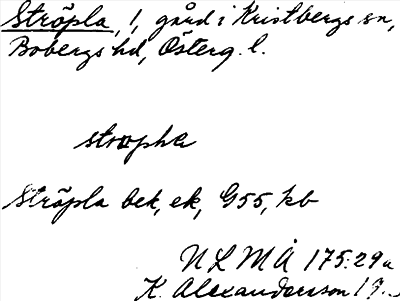 Ströpla, 1, gård i Kristbergs sn,
Bobergs hd, Österg. l.
Ströpla bek, ek, G55, kb
NLMÅ 175:29a
K. Alexandersson